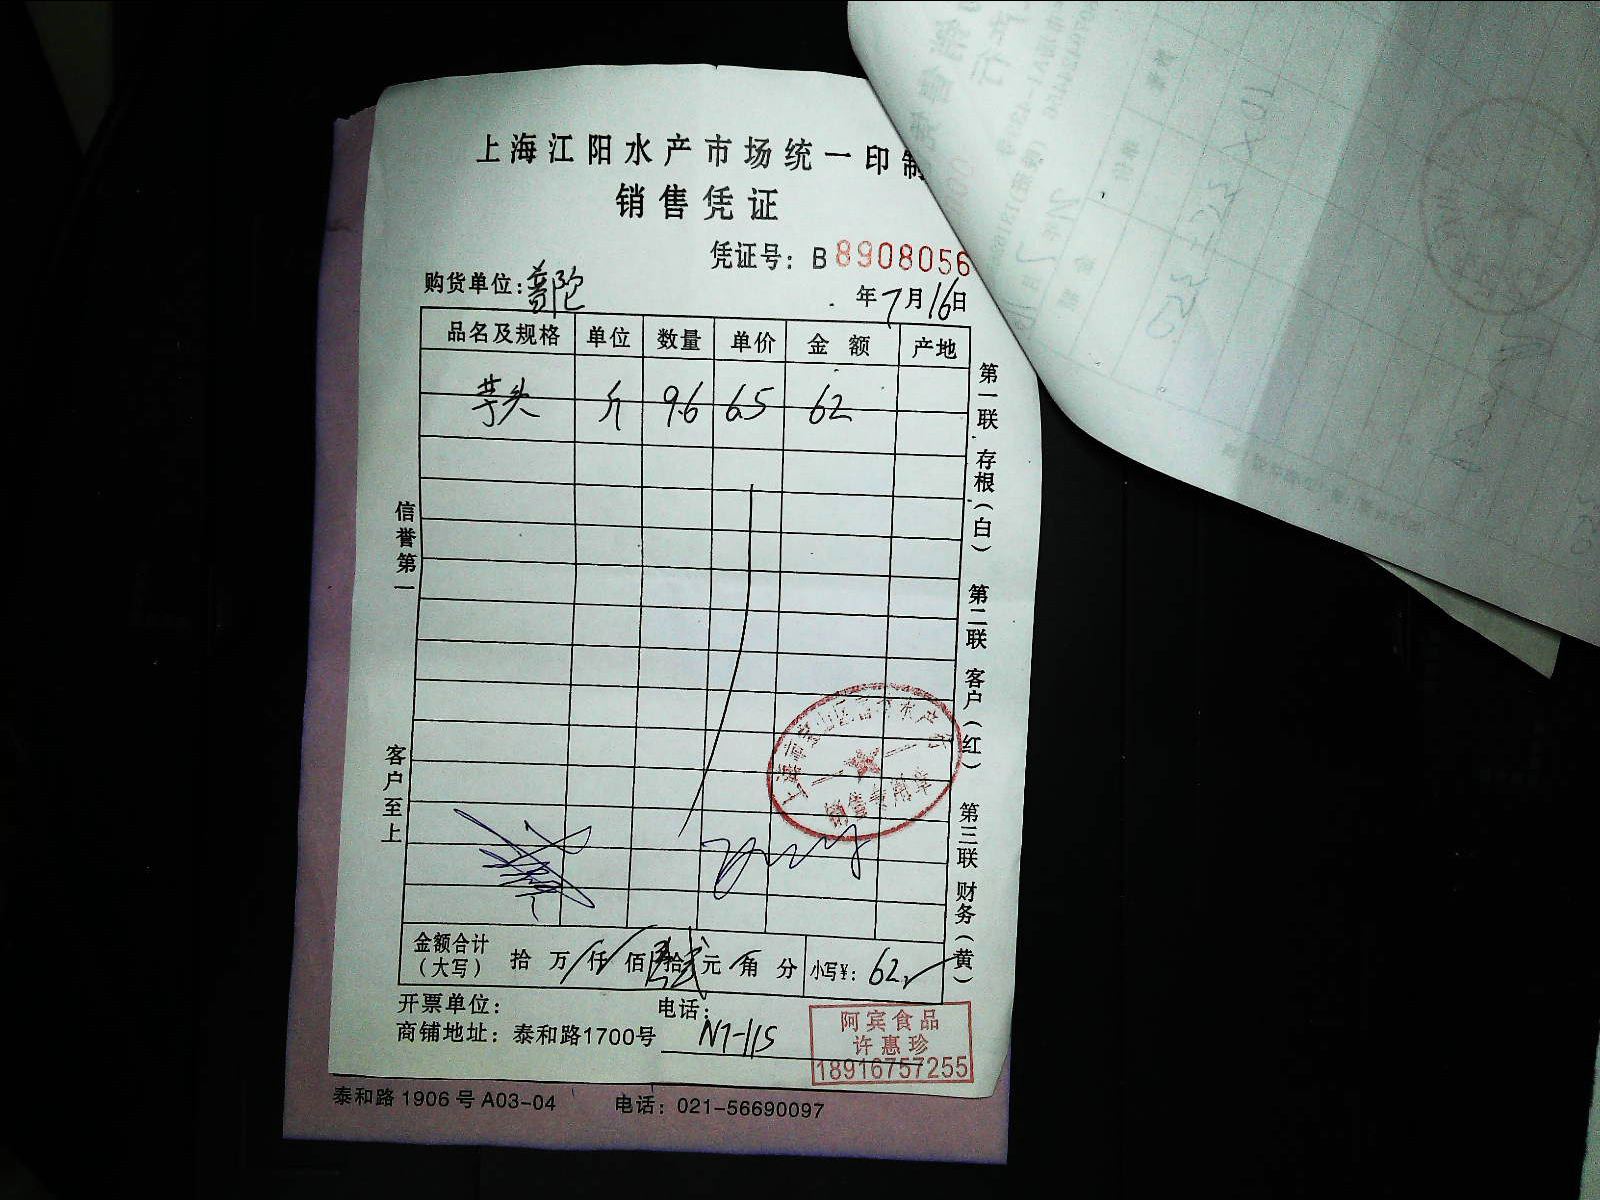 上海江阳水产市场统一印制
销售凭证
凭证号：B 8908056
购货单位：普陀
年7月16日
品名及规格 单位 数量 单价 金额 产地
芋头 斤 9.6 6.5 62
信誉第一
客户至上
第一联 存根（白） 第二联 客户（红） 第三联 财务（黄）
销售专用章
金额合计（大写） 拾 万 仟 佰 陆拾贰元 角 分 小写¥：62
开票单位： 电话：
商铺地址：泰和路1700号 N7-115
阿宾食品
许惠珍
18916757255
泰和路 1906 号 A03-04 电话：021-56690097